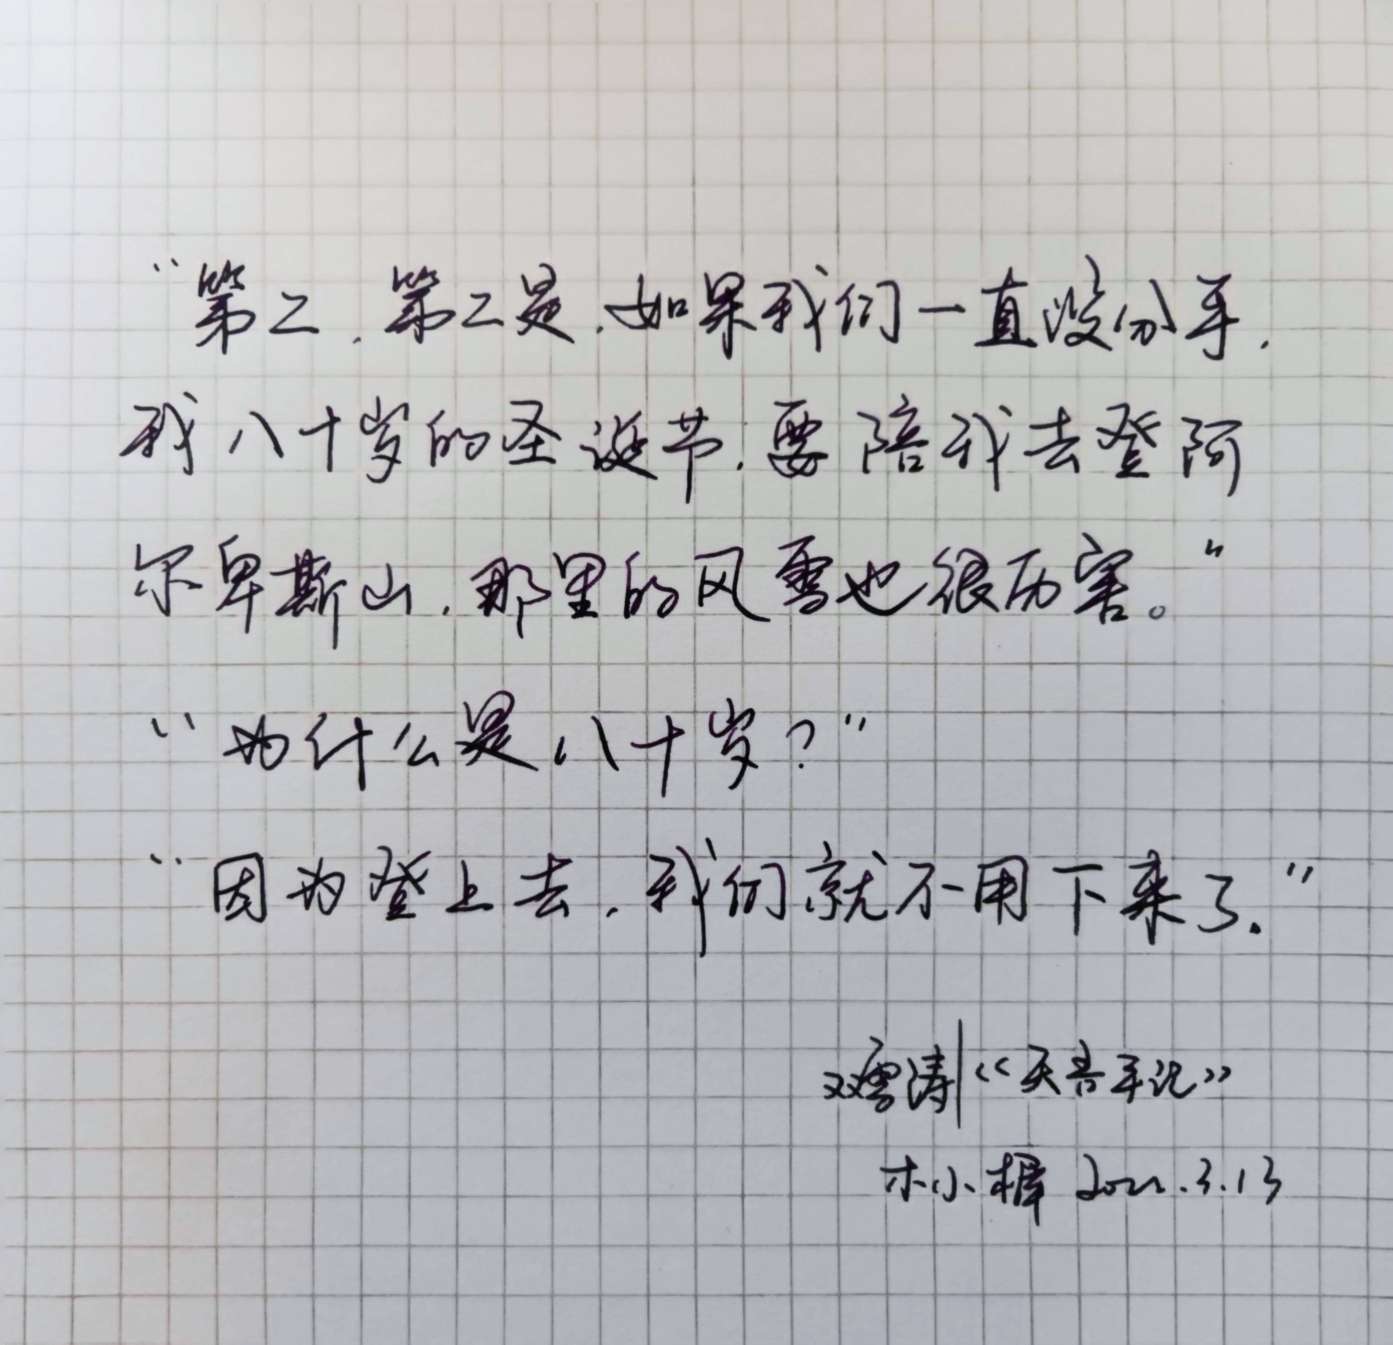 “第二，第二是，如果我们一直没分手，
我八十岁的圣诞节，要陪我去登阿
尔卑斯山，那里的风雪也很厉害。”
“为什么是八十岁？”
“因为登上去，我们就不用下来了.”
双雪涛|《天吾手记》
木小樨 2022.3.13